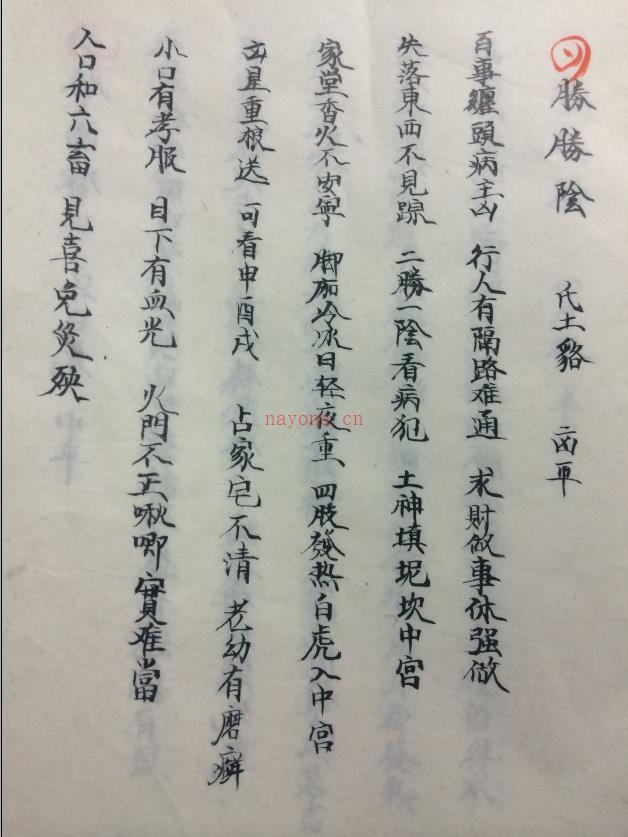 勝勝陰 氐土貉 卣平
百事纏頭病主凶 行人有隔路难通 求財做事休强做
失落東西不見踪 二勝一陰看病犯 土神填坭坎中宫
家堂香火不安寧 脚冷冰日轻夜重 四肢發热白虎入中宫
重根送 可看申酉戌 占家宅不清 老幼有磨癣
小口有孝服 目下有血光 火門不正啾唧實难當
人口和六畜 見喜免災殃
nayons.cn